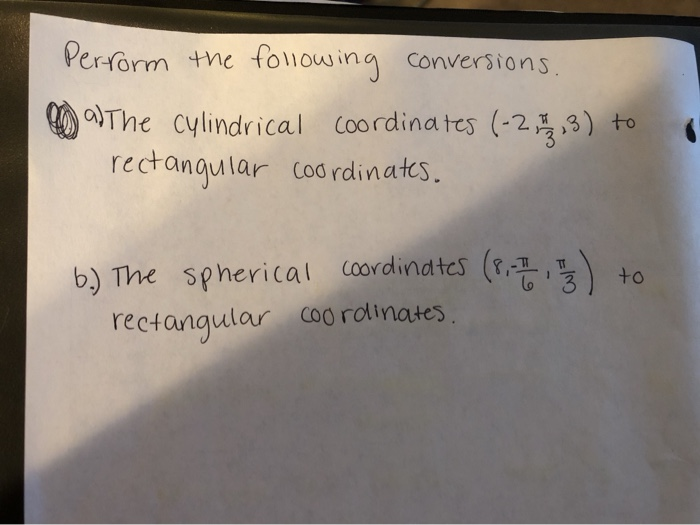 Perform the following conversions.
a) The cylindrical coordinates (-2, π/3, 3) to
rectangular coordinates.
b.) The spherical coordinates (8, -π/6, π/3) to
rectangular coordinates.